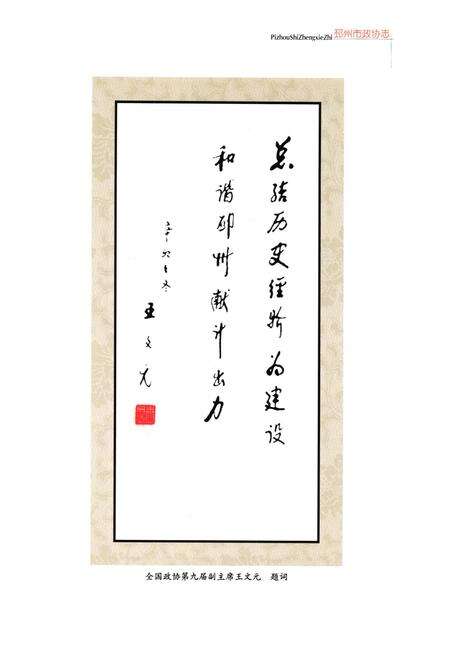 PizhouShiZhengxieZhi 邳州市政协志
总结历史经验为建设
和谐邳州献计出力
王文元
全国政协第九届副主席王文元 题词